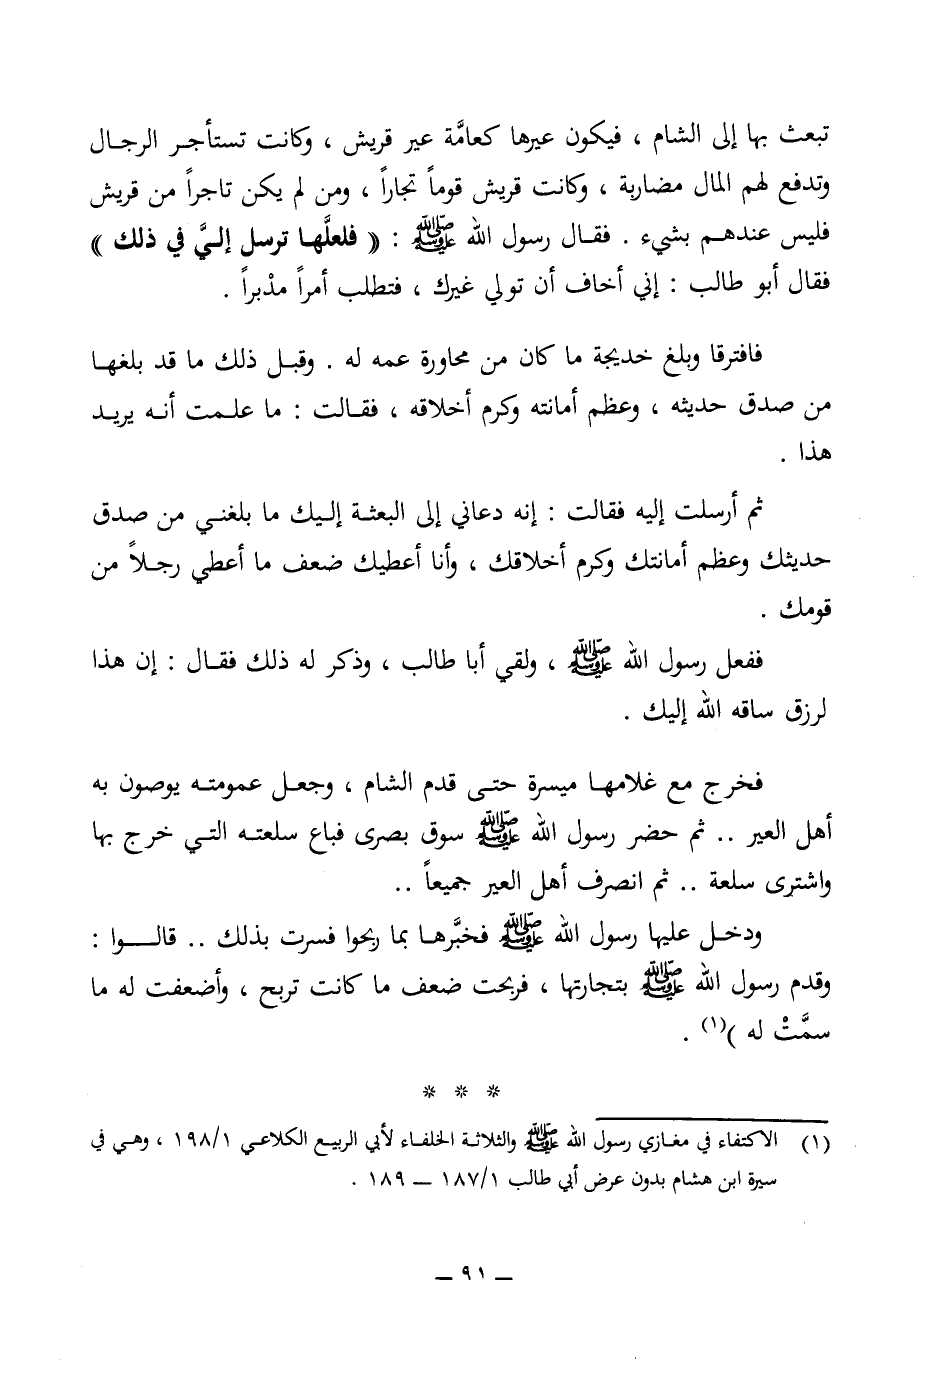 تبعث بها إلى الشام ، فيكون عيرها كعامَّة عير قريش ، وكانت تستأجر الرجال
وتدفع لهم المال مضاربة ، وكانت قريش قوماً تجاراً ، ومن لم يكن تاجراً من قريش
فليس عندهم بشيء . فقال رسول الله ﷺ : « فلعلَّها ترسل إليَّ في ذلك »
فقال أبو طالب : إني أخاف أن تولي غيرك ، فتطلب أمراً مدْبراً .
فافترقا وبلغ خديجة ما كان من محاورة عمه له . وقبل ذلك ما قد بلغها
من صدق حديثه ، وعظم أمانته وكرم أخلاقه ، فقالت : ما علمت أنه يريد
هذا .
ثم أرسلت إليه فقالت : إنه دعاني إلى البعثة إليك ما بلغني من صدق
حديثك وعظم أمانتك وكرم أخلاقك ، وأنا أعطيك ضعف ما أعطي رجلاً من
قومك .
ففعل رسول الله ﷺ ، ولقي أبا طالب ، وذكر له ذلك فقال : إن هذا
لرزق ساقه الله إليك .
فخرج مع غلامها ميسرة حتى قدم الشام ، وجعل عمومته يوصون به
أهل العير .. ثم حضر رسول الله ﷺ سوق بصرى فباع سلعته التي خرج بها
واشترى سلعة .. ثم انصرف أهل العير جميعاً ..
ودخل عليها رسول الله ﷺ فخبَّرها بما ربحوا فسرت بذلك .. قالوا :
وقدم رسول الله ﷺ بتجارتها ، فربحت ضعف ما كانت تربح ، وأضعفت له ما
سمَّتْ له )(١) .
* * *
(١) الاكتفاء في مغازي رسول الله ﷺ والثلاثة الخلفاء لأبي الربيع الكلاعي ١٩٨/١ ، وهي في
سيرة ابن هشام بدون عرض أبي طالب ١٨٧/١ – ١٨٩ .
– ٩١ –